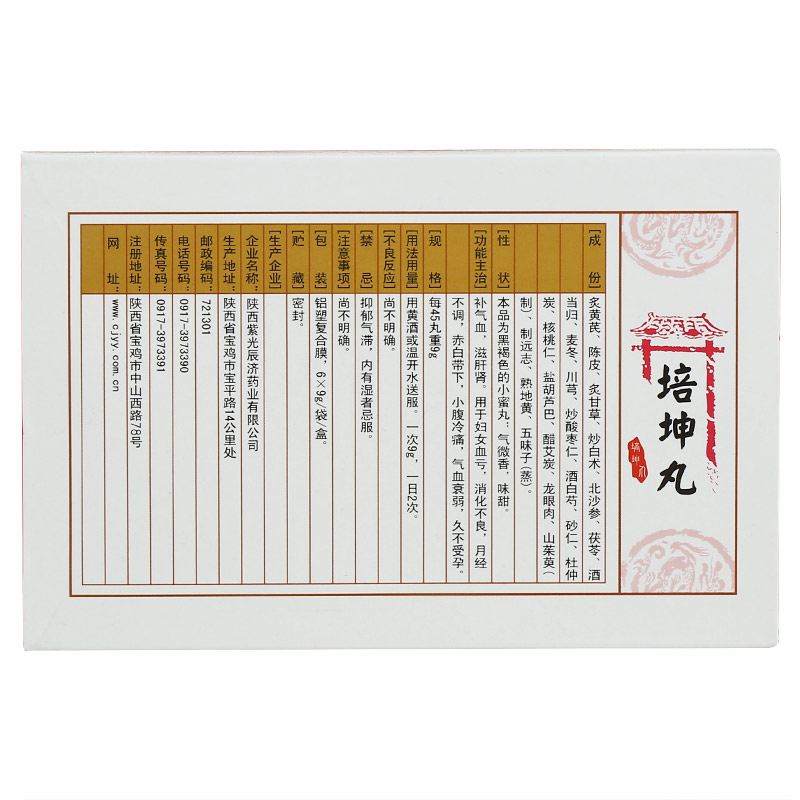 培坤丸
培坤丸
[成份] 炙黄芪、陈皮、炙甘草、炒白术、北沙参、茯苓、酒
当归、麦冬、川芎、炒酸枣仁、酒白芍、砂仁、杜仲
炭、核桃仁、盐胡芦巴、醋艾炭、龙眼肉、山茱萸(
制)、制远志、熟地黄、五味子(蒸)。
[性状] 本品为黑褐色的小蜜丸；气微香，味甜。
[功能主治] 补气血，滋肝肾。用于妇女血亏，消化不良，月经
不调，赤白带下，小腹冷痛，气血衰弱，久不受孕。
[规格] 每45丸重9g
[用法用量] 用黄酒或温开水送服。一次9g，一日2次。
[不良反应] 尚不明确。
[禁忌] 抑郁气滞，内有湿者忌服。
[注意事项] 尚不明确。
[包装] 铝塑复合膜，6×9g/袋/盒。
[贮藏] 密封。
[生产企业]
企业名称：陕西紫光辰济药业有限公司
生产地址：陕西省宝鸡市宝平路14公里处
邮政编码：721301
电话号码：0917-3973390
传真号码：0917-3973391
注册地址：陕西省宝鸡市中山西路78号
网址：www.cjyy.com.cn